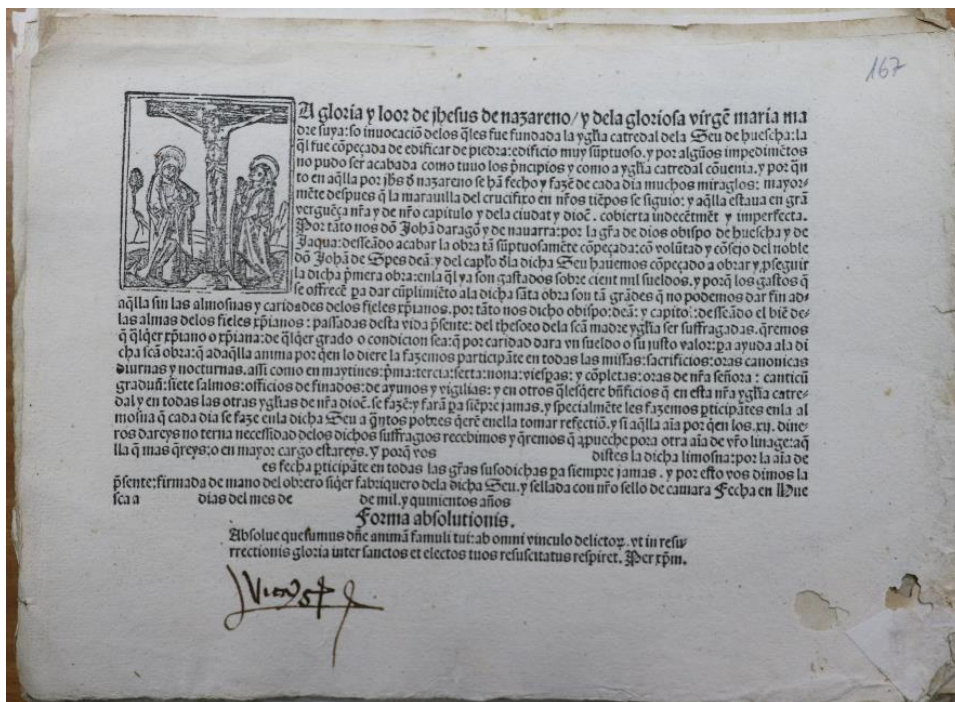 167
A gloria y loor de jhesus de nazareno/ y dela gloriosa virgẽ maria ma
dre suya: so inuocaciõ delos q̃les fue fundada la ygl̃ia catredal dela Seu de huescha: la
q̃l fue cõpeçada de edificar de piedra: edificio muy sũptuoso. y por algũos impedimẽtos
no pudo ser acabada como tuuo los p̃ncipios y como a ygl̃ia catredal cõuenia. y por q̃n
to en aq̃lla por jhũs đ nazareno se hã fecho y fazẽ de cada dia muchos miraglos: mayor-
mẽte despues q̃ la marauilla del crucifixo en nr̃os tiẽpos se siguio: y aq̃lla estaua en grã
verguẽça nr̃a y de nr̃o capitulo y dela ciudat y dioc̃. cobierta indecẽtmẽt y imperfecta.
Por tãto nos dõ Johã daragõ y de nauarra: por la gr̃a de dios obispo de huescha y de
Jaqua: desseãdo acabar la obra tã sũptuosamẽte cõpeçada: cõ volũtad y cõsejo del noble
dõ Johã de Spes deã: y del capl̃o đla dicha Seu hauemos cõpeçado a obrar y ꝓseguir
la dicha p̃mera obra: enla q̃l ya son gastados sobre cient mil sueldos. y porq̃ los gastos q̃
se offrecẽ ꝑa dar cũplimiẽto ala dicha sãta obra son tã grãdes q̃ no podemos dar fin ad-
aq̃lla sin las almosnas y caridades delos fieles xp̃ianos. por tãto nos dicho obispo: deã: y capito: desseãdo el biẽ de-
las almas delos fieles xp̃ianos: passadas desta vida p̃sente: del thesoro dela scã madre ygl̃ia ser suffragadas. q̃remos
q̃ q̃lq̃er xp̃iano o xp̃iana: de q̃lq̃er grado o condicion sea: q̃ por caridad dara vn sueldo o su justo valor: ꝑa ayuda ala di
cha scã obra: q̃ adaq̃lla anima por q̃en lo diere la fazemos participãte en todas las missas: sacrificios: oras canonicas
diurnas y nocturnas. assi como en maytines: p̃ma: tercia: sexta: nona: viespas: y cõpletas: oras de nr̃a señora: canticũ
graduũ: siete salmos: officios de finados: de ayunos y vigilias: y en otros q̃lesq̃ere bñficios q̃ en esta nr̃a ygl̃ia catre-
dal y en todas las otras ygl̃ias de nr̃a dioc̃. se fazẽ: y farã ꝑa siẽpre jamas. y specialmẽte les fazemos ꝑticipãtes enla al
mosna q̃ cada dia se faze enla dicha Seu a q̃ntos pobres q̃erẽ enella tomar refectiõ. y si aq̃lla aĩa por q̃en los .xij. dine-
ros dareys no terna necessidad delos dichos suffragios recebimos y q̃remos q̃ aꝓueche por otra aĩa de vr̃o linage: aq̃
lla q̃ mas q̃reys: o en mayor cargo estareys. y porq̃ vos distes la dicha limosna: por la aĩa de
es fecha ꝑticipãte en todas las gr̃as susodichas ꝑa siempre jamas. y por esto vos dimos la
p̃sente: firmada de mano del obrero siq̃er fabriquero dela dicha Seu. y sellada con nr̃o sello de camara Fecha en Hue
sca a dias del mes de de mil. y quinientos años
Forma absolutionis.
Absolue quesumus dñe animã famuli tui: ab omni vinculo delictoꝝ. vt in resu-
rrectionis gloria inter sanctos et electos tuos resuscitatus respiret. Per xp̃m.